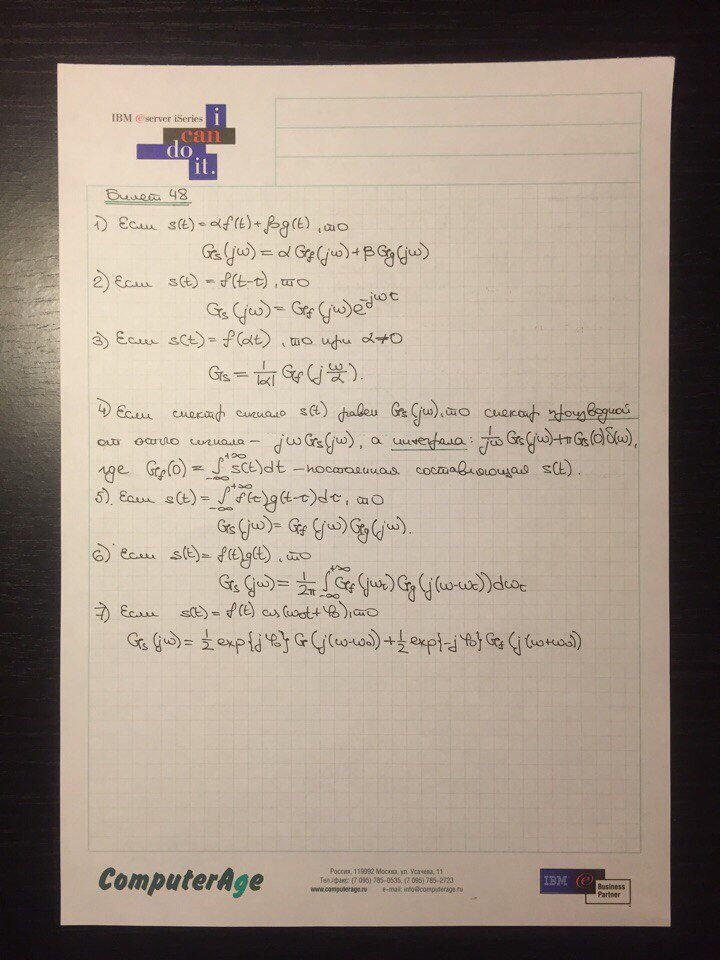 IBM eserver iSeries
i
can
do
it.
Билет 48
1) Если s(t) = αf(t) + βg(t), то
Gs(jω) = αGf(jω) + βGg(jω)
2) Если s(t) = f(t-τ), то
Gs(jω) = Gf(jω)e^-jωτ
3) Если s(t) = f(αt), то при α≠0
Gs = 1/|α| Gf(j ω/α).
4) Если спектр сигнала s(t) равен Gs(jω), то спектр производной
от этого сигнала - jωGs(jω), а интеграла: 1/jω Gs(jω)+πGs(0)δ(ω),
где Gf(0) = ∫_-∞^+∞ s(t)dt - постоянная составляющая s(t).
5) Если s(t) = ∫_-∞^+∞ f(τ)g(t-τ)dτ, то
Gs(jω) = Gf(jω)Gg(jω).
6) Если s(t) = f(t)g(t), то
Gs(jω) = 1/2π ∫_-∞^+∞ Gf(jωτ)Gg(j(ω-ωτ))dωτ
7) Если s(t) = f(t) cos(ω0t+φ0), то
Gs(jω) = 1/2 exp{jφ0}G(j(ω-ω0)) + 1/2 exp{-jφ0}Gf(j(ω+ω0))
ComputerAge
Россия, 119992 Москва, ул. Усачева, 11
Тел./факс: (7 095) 785–0535, (7 095) 785–2723
www.computerage.ru e-mail: info@computerage.ru
IBM e
Business
Partner